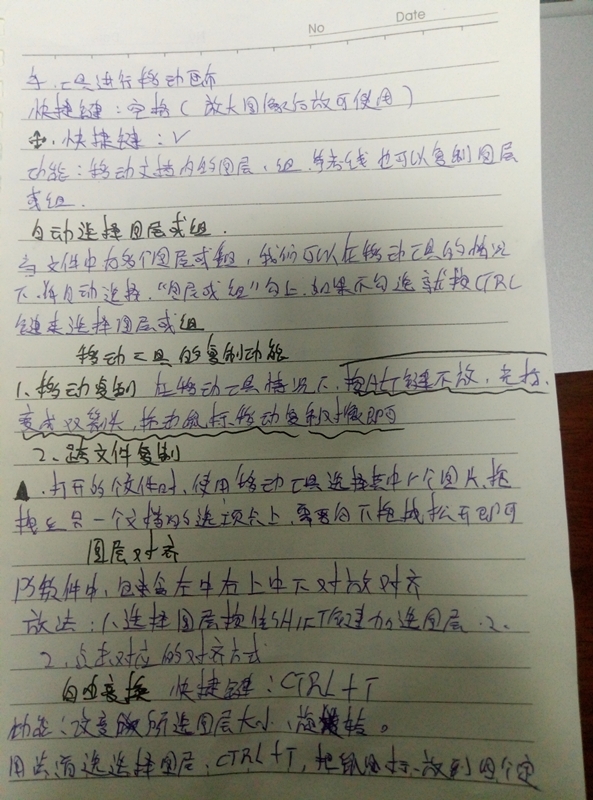 No        Date
手.工具进行移动画布
快捷键：空格（放大图像后放可使用）
快捷键：V
功能：移动文档内的图层、组.参考线也可以复制图层
或组.
自动选择图层或组.
当文件中有多个图层或组，我们可以在移动工具的情况
下.将自动选择."图层或组"勾上.如果不勾选就按CTRL
键来选择图层或组
移动工具的复制功能
1、移动复制 在移动工具情况下.按ALT键不放，光标.
变成双箭头，拖动鼠标.移动复制对像即可
2、跨文件复制
▲.打开的个文件时，使用移动工具选择其中1个图片.拖
拽至另一个文档的选项卡上.需要向下拖拽松开即可
图层对齐
PS软件中，包含左中右上中下对齐
放法：1、选择图层按住SHIFT键加选图层.2.
2、点击对应的对齐方式
自由变换 快捷键：CTRL+T
功能：改变所选图层大小、旋转。
用法首选选择图层.CTRL+T，把鼠标放到四个定